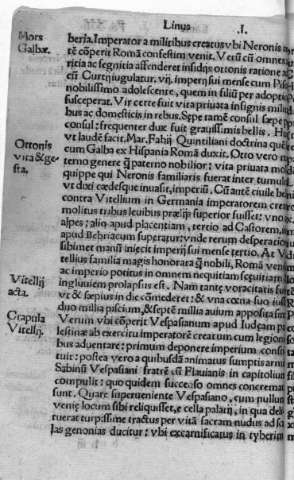 Linus I.
Mors
Galbæ.
beria. Imperator a militibus creatus vbi Neronis in
tẽ cõperit Romã confestim venit. Verũ cũ omnes
ritia ac segnitia offenderet insidijs ottonis ratione
cũ Curtij iugulatur. vij. imperij sui mense cum Piso
nobilissimo adolescente, quem in filiũ per adopti
susceperat. Vir certe fuit vita priuata insignis milita
bus ac domesticis in rebus. Sepe tamẽ consul sepe p
consul: frequenter dux fuit grauissimis bellis. Huius
vt laudẽ facit. Mar. Fabij Quintiliani doctrina que
cum Galba ex Hispania Romã duxit. Otto vero m
Ottonis
vita & ge
sta.
terno genere q̃ paterno nobilior: vita priuata mol
quippe qui Neronis familiaris fuerat inter tumult
vt duxi cædesque inuasit, imperiũ. Cũ antẽ ciuile ben
contra Vitellium in Germania imperatorem creare
molitus tribus leuibus prælijs superior fuisset: vno ap
alpes: alio apud placentiam, tertio ad Castorem,
apud Bebriacum superatur: vnde rerum desperatio
sibimet manũ iniecit imperij sui mense tertio. At Vi
tellius familia magis honorara q̃ nobili, Romã venit
ac imperio potitus in omnem nequitiam sequitiam
Vitellij
acta.
ingluuiem prolapsus est. Nam tantę voracitatis fuit
vt & sæpius in die comederet: & vna cœna suo iussu
duo millia piscium, & septẽ millia auium apposita sint
Crapula
Vitellij.
Verum vbi cõperit Vespasianum apud Iudęam pa
lestinæ ab exercitu imperatorẽ creatum cum legioni
bus aduentare: primum deponere imperium consti
tuit: postea vero a quibusdã animatus sumptis armis
Sabinũ Vespasiani fratrẽ cũ Flauianis in capitoliũ
compulit: quo quidem succenso omnes concremati
sunt. Quare superueniente Vespasiano, cum nullus
venię locum sibi reliquisset, e cella palatij, in qua deli
fuerat turpissime tractus per viã sacram nudus ad sca
las gemonias ducitur: vbi excarnificatus in tyberim